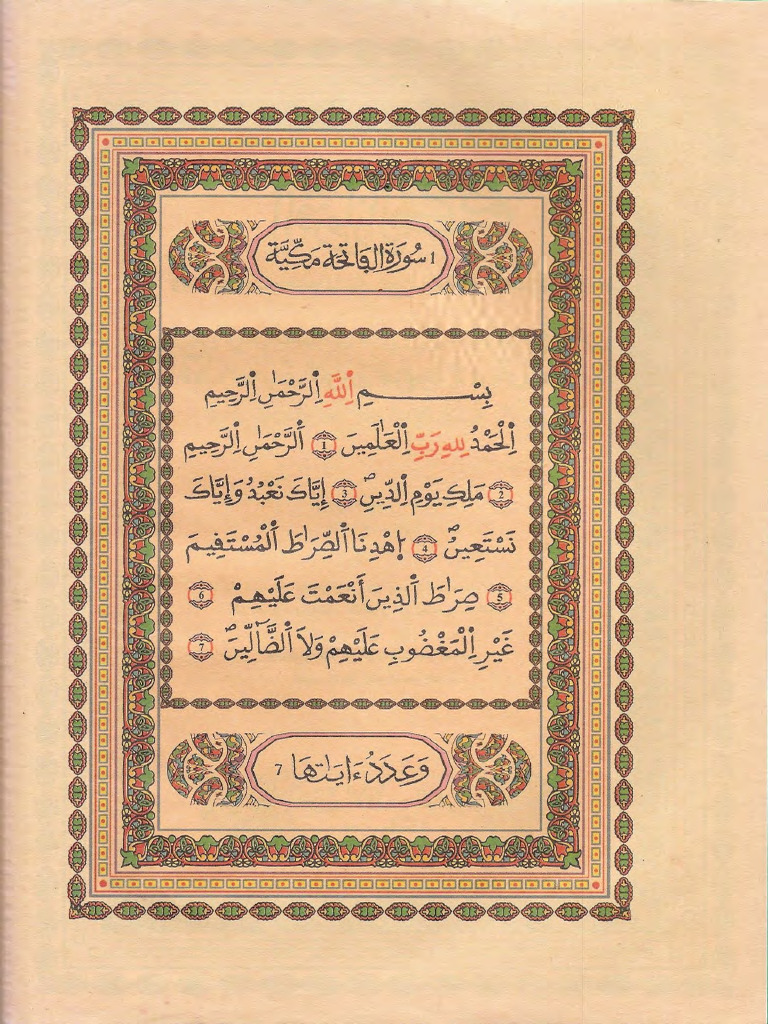 1 سُورَةُ الْفَاتِحَةِ مَكِّيَّة
بِسْمِ اِللَّهِ اِلرَّحْمَٰنِ اِلرَّحِيمِ
اِلْحَمْدُ لِلهِ رَبِّ اِلْعَٰلَمِينَ 1 اَلرَّحْمَٰنِ اِلرَّحِيمِ
2 مَلِكِ يَوْمِ اِلدِّينِ 3 إِيَّاكَ نَعْبُدُ وَإِيَّاكَ
نَسْتَعِينُ 4 اِهْدِنَا اَلصِّرَٰطَ اَلْمُسْتَفِيمَ
5 صِرَٰطَ اَلذِينَ أَنْعَمْتَ عَلَيْهِمْ 6
غَيْرِ اِلْمَغْضُوبِ عَلَيْهِمْ وَلاَ اَلضَّآلِّينَ 7
وَعَدَدُ ءَايَٰتِهَا 7